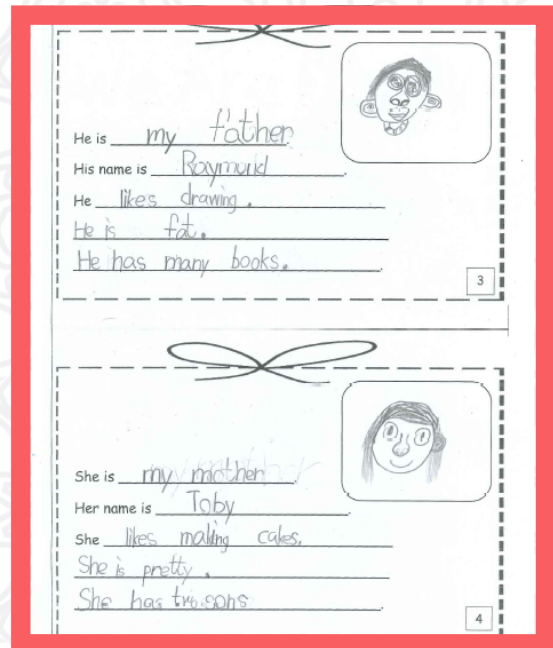 He is my father
His name is Raymund.
He likes drawing.
He is fat.
He has many books.
3
She is my mother.
Her name is Toby.
She likes making cakes.
She is pretty.
She has two sons.
4